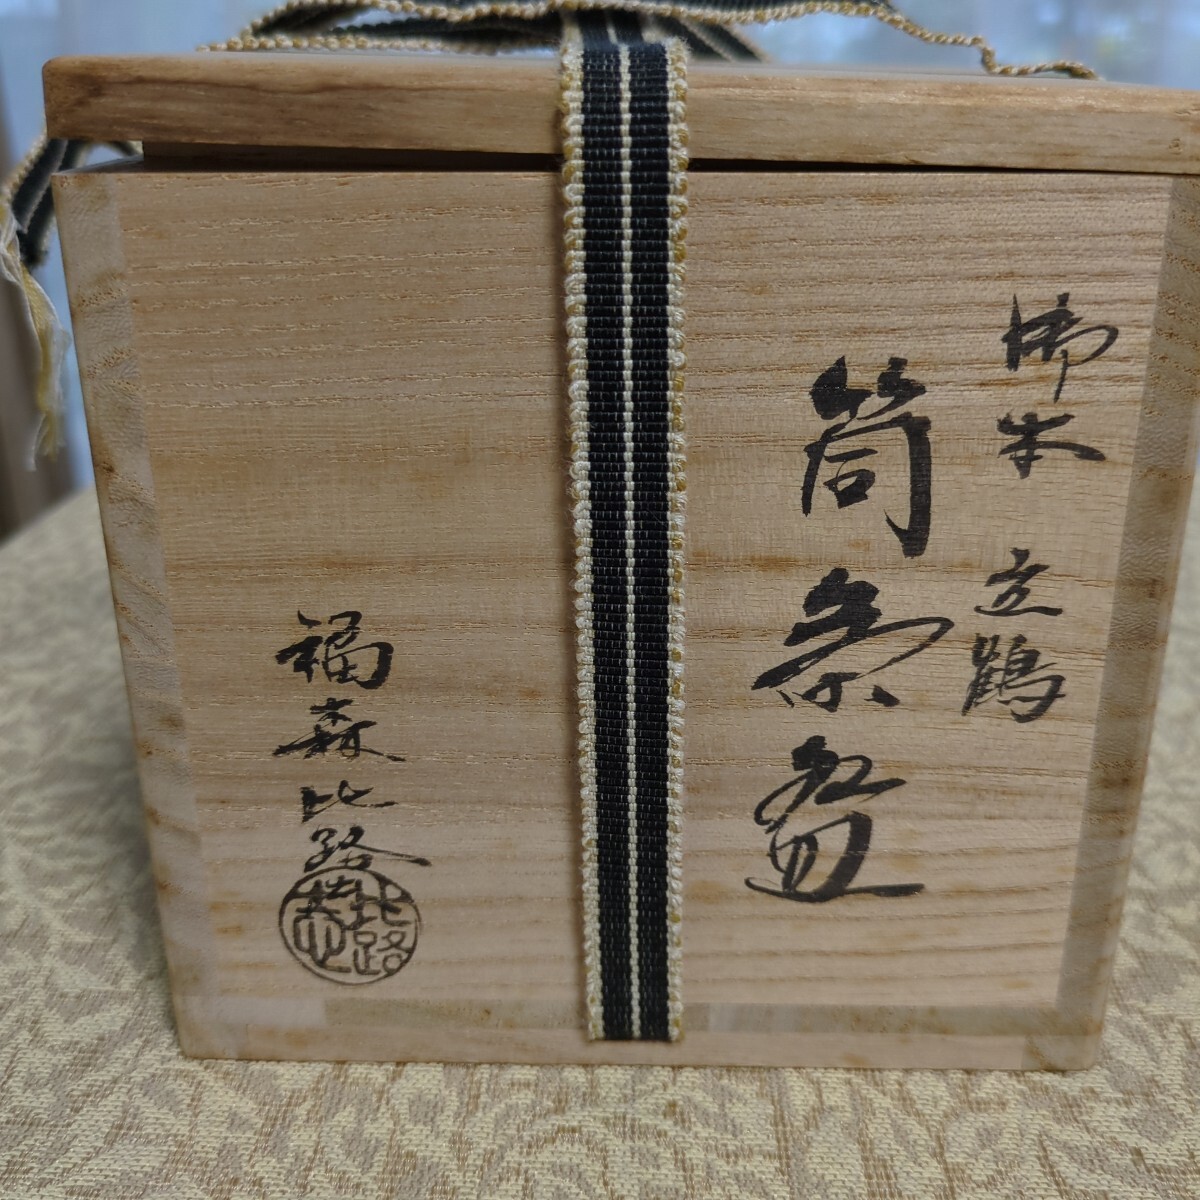 御本 立鶴
筒茶盌
福森比路
比路